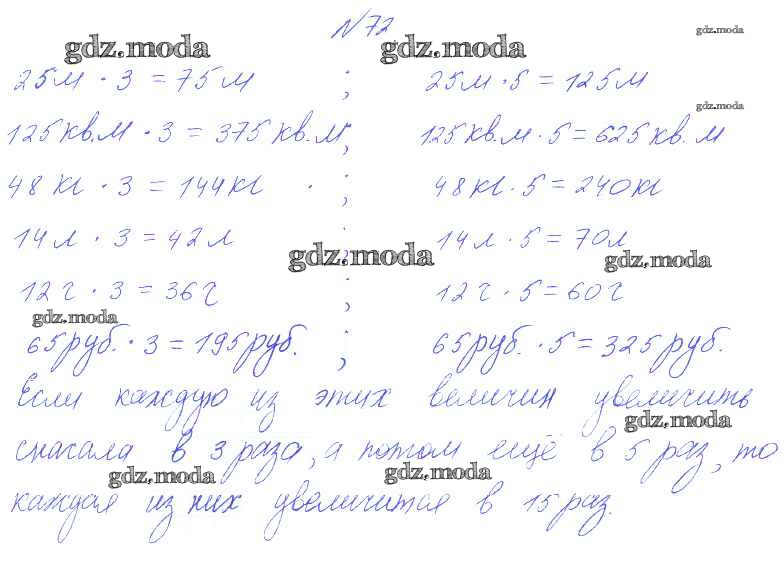 №72
gdz.moda gdz.moda gdz.moda
25м · 3 = 75м ; 25м · 5 = 125м
gdz.moda
125кв.м · 3 = 375кв.м ; 125кв.м · 5 = 625кв.м
48кг · 3 = 144кг ; 48кг · 5 = 240кг
14л · 3 = 42л ; 14л · 5 = 70л
gdz.moda gdz.moda
12ч · 3 = 36ч ; 12ч · 5 = 60ч
gdz.moda
65руб. · 3 = 195руб. ; 65руб. · 5 = 325руб.
Если каждую из этих величин увеличить
gdz.moda
сначала в 3 раза, а потом ещё в 5 раз, то
gdz.moda gdz.moda
каждая из них увеличится в 15 раз.